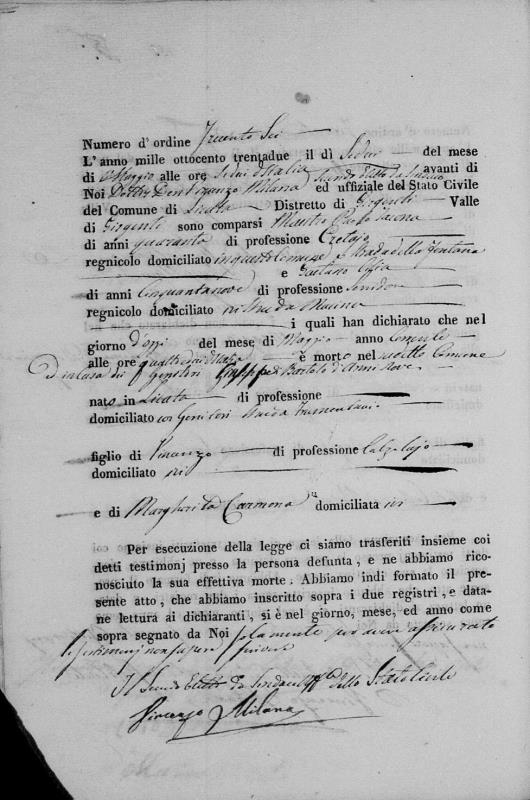 Numero d' ordine Trecento Sei
L'anno mille ottocento trentadue il dì Sedici del mese
di Maggio alle ore Sedici d'Italia avanti di
Noi Don Vincenzo Milana Secondo Eletto da Sindaco ed uffiziale del Stato Civile
del Comune di Licata Distretto di Girgenti Valle
di Girgenti sono comparsi Mastro Paolo
di anni quaranta di professione Cretajo
regnicolo domiciliato in questo Comune Strada della Fontana
e Gaetano
di anni Cinquantanove di professione Servidore
regnicolo domiciliato ivi Strada Marina
i quali han dichiarato che nel
giorno d'oggi del mese di Maggio anno corrente
alle ore quattordici d'Italia è morto nel sudetto Comune
d in casa dei genitori Giuseppe di Bartolo d'Anni Nove
nato in Licata di professione
domiciliato coi Genitori Strada
figlio di Vincenzo di professione Calzolajo
domiciliato ivi
e di Margherita Carmona domiciliata ivi
Per esecuzione della legge ci siamo trasferiti insieme coi
detti testimonj presso la persona defunta, e ne abbiamo rico-
nosciuto la sua effettiva morte. Abbiamo indi formato il pre-
sente atto, che abbiamo inscritto sopra i due registri, e data-
ne lettura ai dichiaranti, si è nel giorno, mese, ed anno come
sopra segnato da Noi solamente per avere assicurato
i testimonj non sapere scrivere
Il Secondo Eletto da Sindaco Uff.le dello Stato Civile
Vincenzo Milana